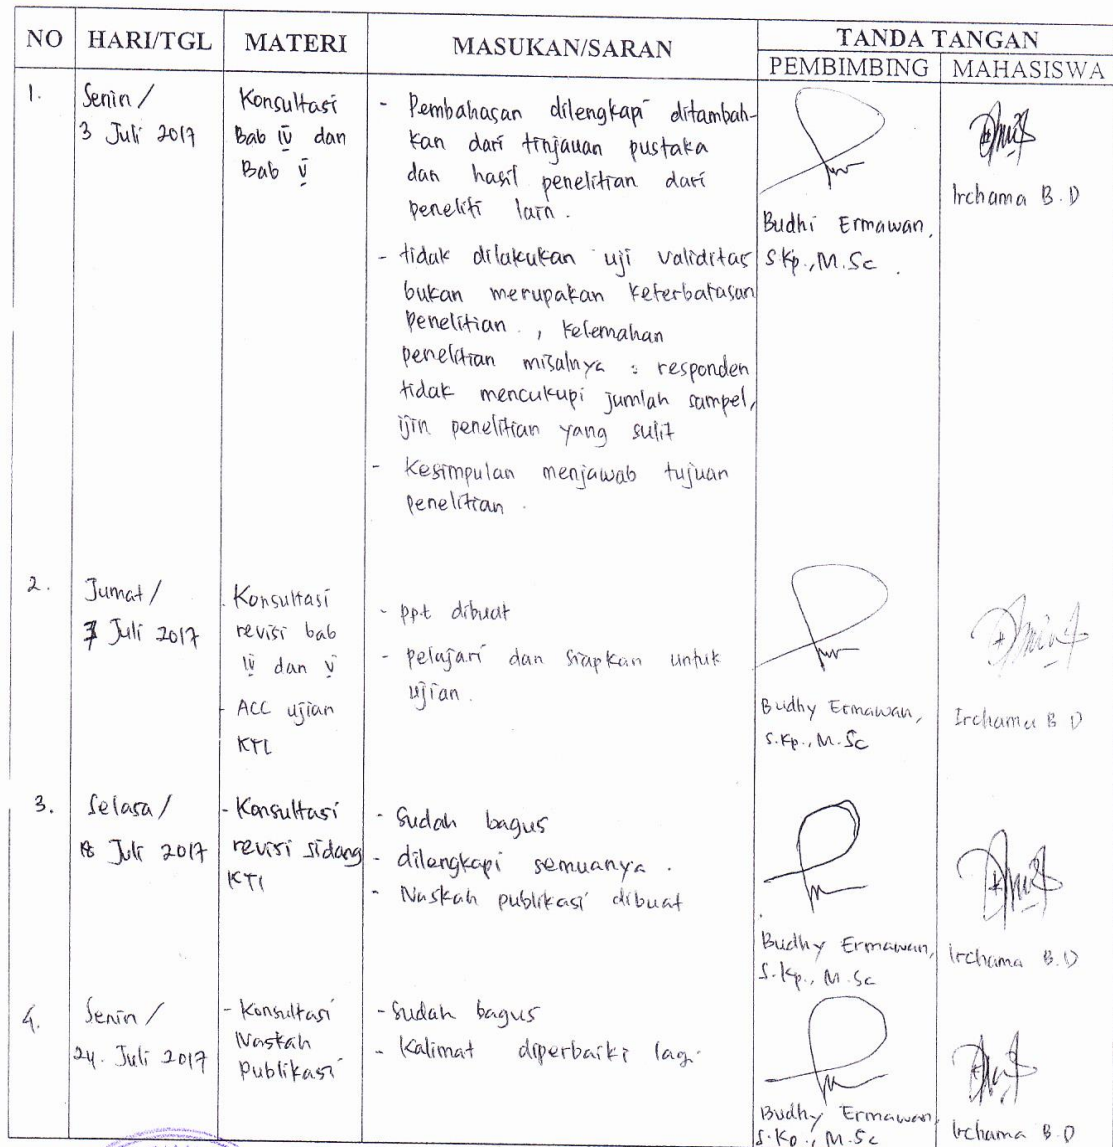 NO HARI/TGL MATERI MASUKAN/SARAN TANDA TANGAN
PEMBIMBING MAHASISWA
1.
Senin /
3 Juli 2017
Konsultasi
Bab IV dan
Bab V
- Pembahasan dilengkapi ditambah-
kan dari tinjauan pustaka
dan hasil penelitian dari
peneliti lain.
- tidak dilakukan uji validitas
bukan merupakan keterbatasan
penelitian., kelemahan
penelitian misalnya : responden
tidak mencukupi jumlah sampel,
ijin penelitian yang sulit
- Kesimpulan menjawab tujuan
penelitian.
Budhi Ermawan,
S.Kp., M.Sc.
Irchama B.D
2.
Jumat /
7 Juli 2017
- Konsultasi
revisi bab
IV dan V
- ACC ujian
KTI
- ppt dibuat
- pelajari dan siapkan untuk
ujian.
Budhy Ermawan,
S.Kp., M.Sc
Irchama B D
3.
Selasa /
18 Juli 2017
- Konsultasi
revisi sidang
KTI
- Sudah bagus
- dilengkapi semuanya.
- Naskah publikasi dibuat
Budhy Ermawan,
S.Kp., M.Sc
Irchama B.D
4.
Senin /
24. Juli 2017
- Konsultasi
Naskah
Publikasi
- Sudah bagus
- Kalimat diperbaiki lagi
Budhy Ermawan,
S.Kp., M.Sc
Irchama B.D